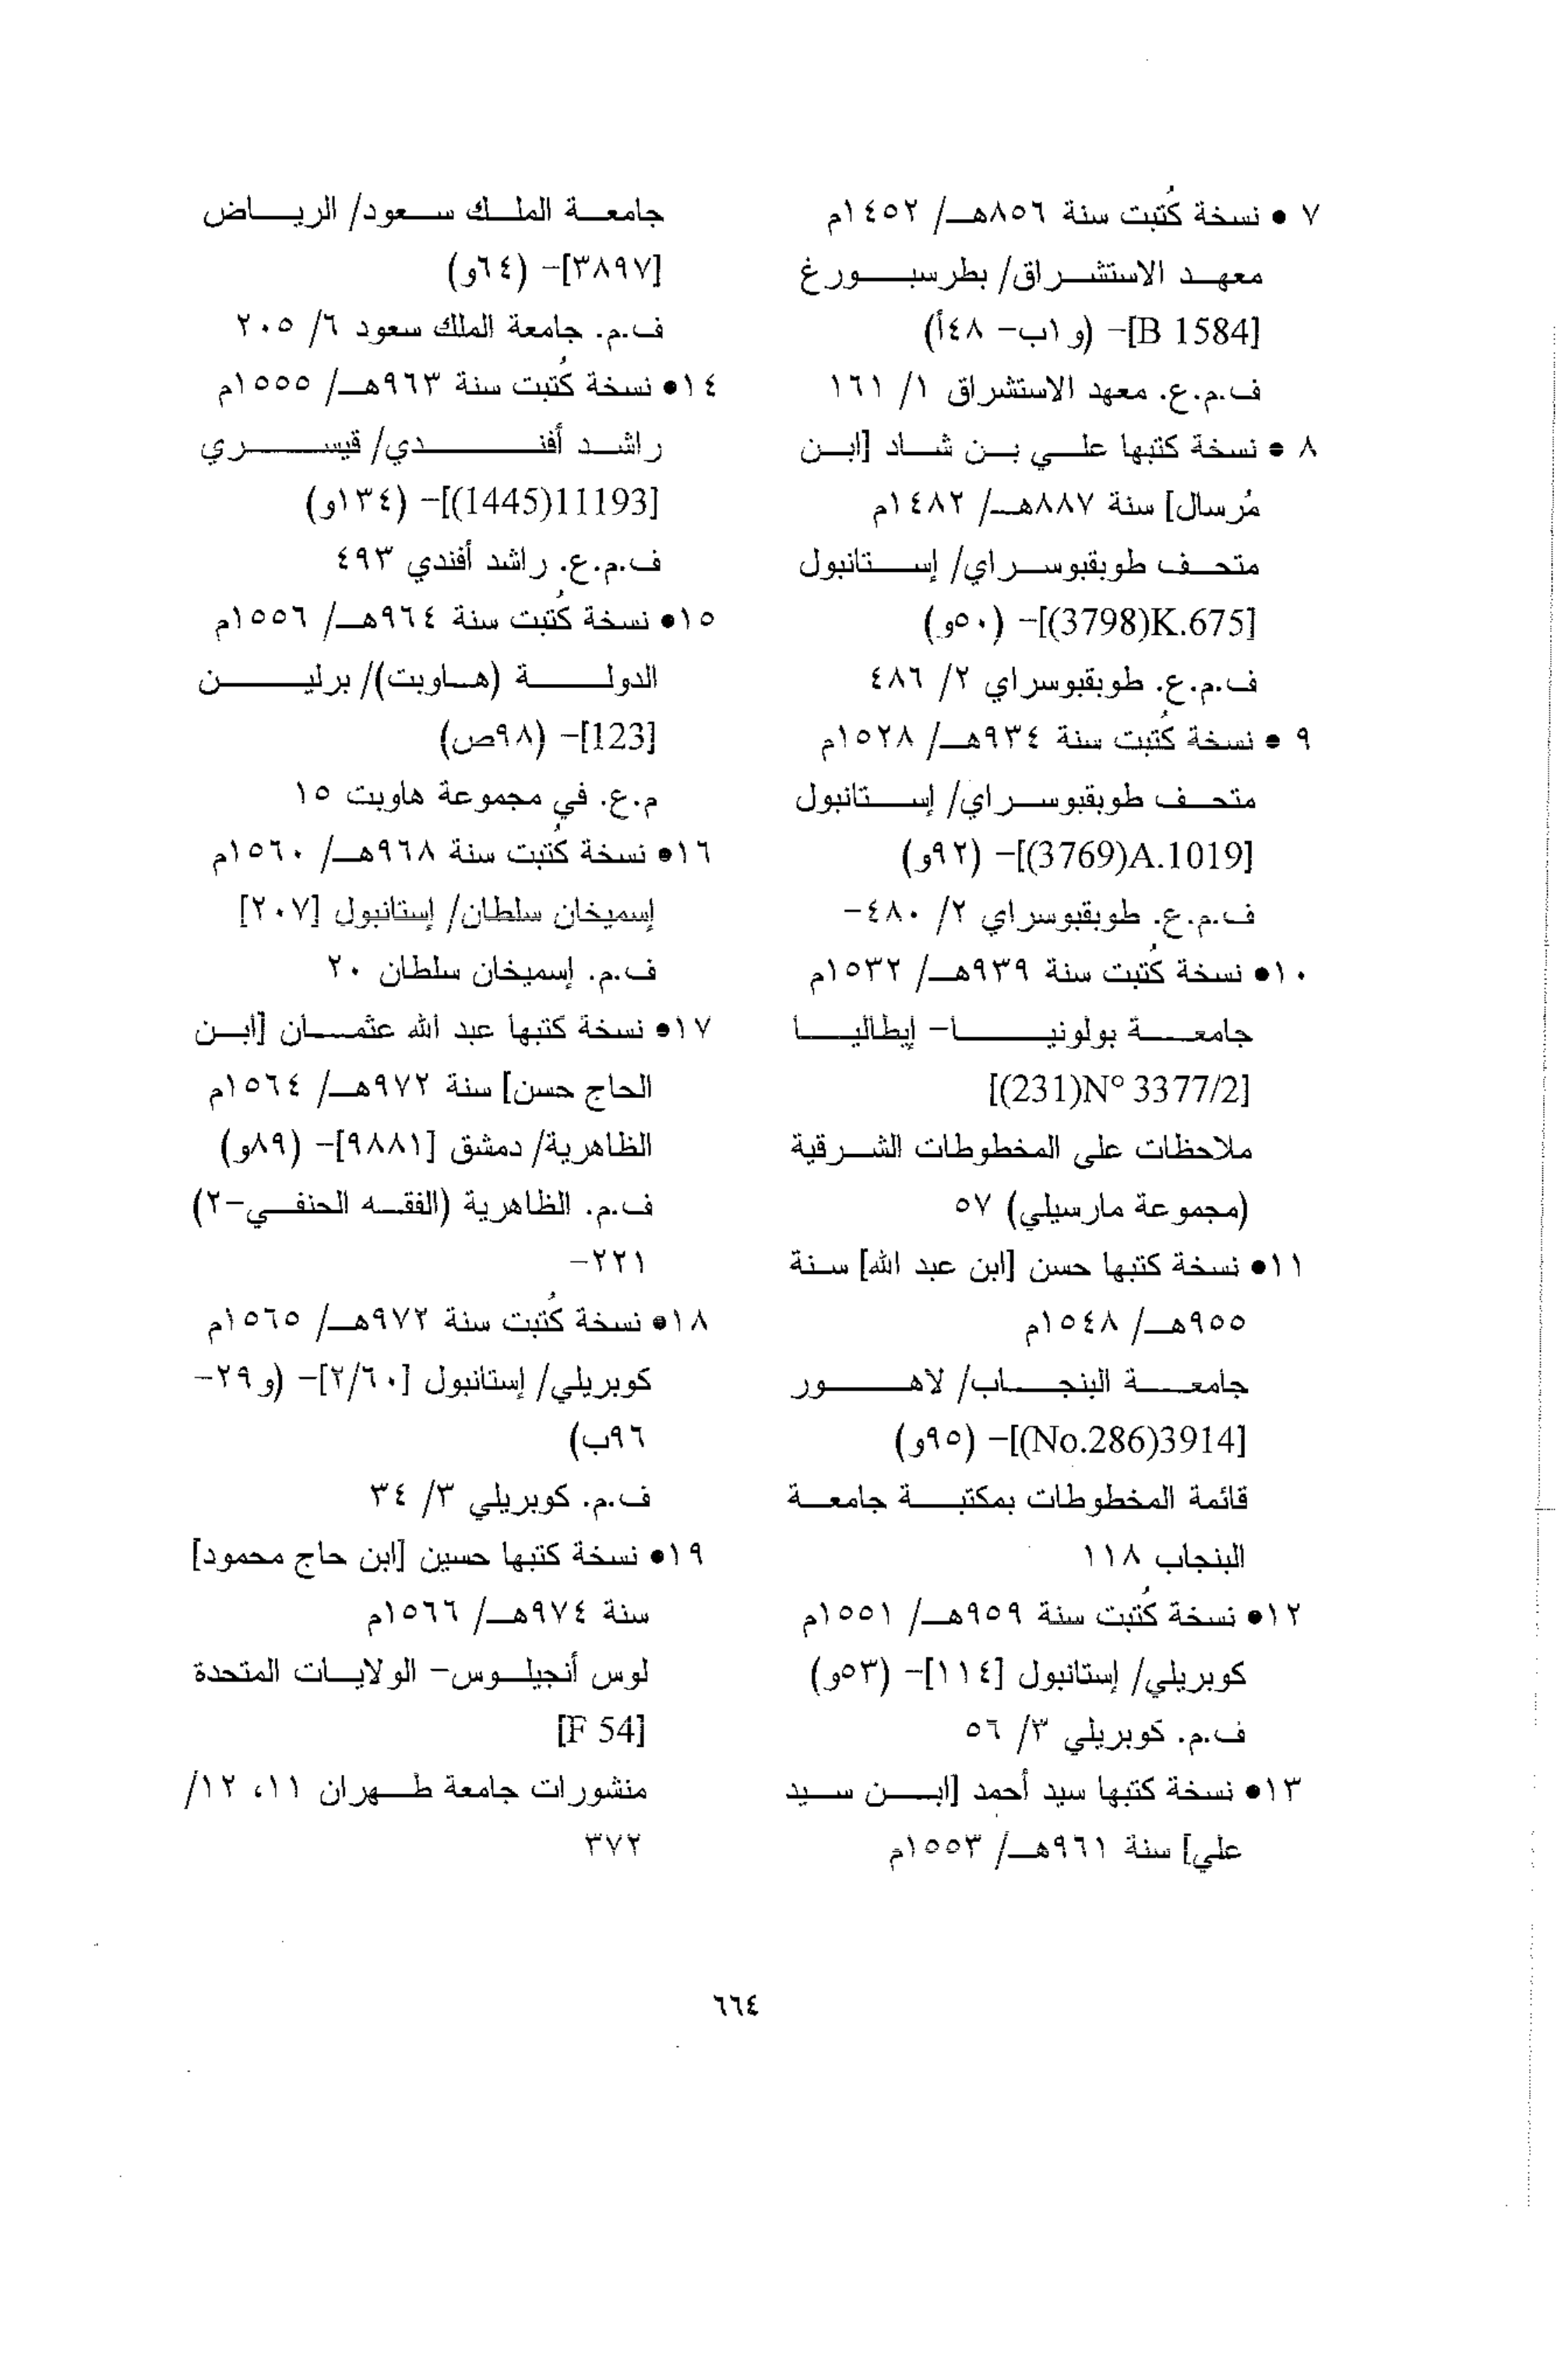 ٧ • نسخة كُتبت سنة ٨٥٦هـ/ ١٤٥٢م
معهد الاستشراق/ بطرسبورغ
[B 1584]- (و١ب- ٤٨أ)
ف.م.ع. معهد الاستشراق ١/ ١٦١
٨ • نسخة كتبها علي بن شاد [ابن
مُرسال] سنة ٨٨٧هـ/ ١٤٨٢م
متحف طوبقبوسراي/ إستانبول
[K.675(3798)]- (٥٠و)
ف.م.ع. طوبقبوسراي ٢/ ٤٨٦
٩ • نسخة كُتبت سنة ٩٣٤هـ/ ١٥٢٨م
متحف طوبقبوسراي/ إستانبول
[A.1019(3769)]- (٩٢و)
ف.م.ع. طوبقبوسراي ٢/ ٤٨٠-
١٠• نسخة كُتبت سنة ٩٣٩هـ/ ١٥٣٢م
جامعة بولونيا- إيطاليا
[N° 3377/2(231)]
ملاحظات على المخطوطات الشرقية
(مجموعة مارسيلي) ٥٧
١١• نسخة كتبها حسن [ابن عبد الله] سنة
٩٥٥هـ/ ١٥٤٨م
جامعة البنجاب/ لاهور
[3914(No.286)]- (٩٥و)
قائمة المخطوطات بمكتبة جامعة
البنجاب ١١٨
١٢• نسخة كُتبت سنة ٩٥٩هـ/ ١٥٥١م
كوبريلي/ إستانبول [١١٤]- (٥٣و)
ف.م. كوبريلي ٣/ ٥٦
١٣• نسخة كتبها سيد أحمد [ابن سيد
علي] سنة ٩٦١هـ/ ١٥٥٣م
جامعة الملك سعود/ الرياض
[٣٨٩٧]- (٦٤و)
ف.م. جامعة الملك سعود ٦/ ٢٠٥
١٤• نسخة كُتبت سنة ٩٦٣هـ/ ١٥٥٥م
راشد أفندي/ قيسري
[11193(1445)]- (١٣٤و)
ف.م.ع. راشد أفندي ٤٩٣
١٥• نسخة كُتبت سنة ٩٦٤هـ/ ١٥٥٦م
الدولة (هاوبت)/ برلين
[123]- (٩٨ص)
م.ع. في مجموعة هاوبت ١٥
١٦• نسخة كُتبت سنة ٩٦٨هـ/ ١٥٦٠م
إسميخان سلطان/ إستانبول [٢٠٧]
ف.م. إسميخان سلطان ٢٠
١٧• نسخة كتبها عبد الله عثمان [ابن
الحاج حسن] سنة ٩٧٢هـ/ ١٥٦٤م
الظاهرية/ دمشق [٩٨٨١]- (٨٩و)
ف.م. الظاهرية (الفقه الحنفي-٢)
٢٢١-
١٨• نسخة كُتبت سنة ٩٧٢هـ/ ١٥٦٥م
كوبريلي/ إستانبول [٢/٦٠]- (و٢٩-
٩٦ب)
ف.م. كوبريلي ٣/ ٣٤
١٩• نسخة كتبها حسين [ابن حاج محمود]
سنة ٩٧٤هـ/ ١٥٦٦م
لوس أنجيلوس- الولايات المتحدة
[F 54]
منشورات جامعة طهران ١١، ١٢/
٣٧٢
٦٦٤